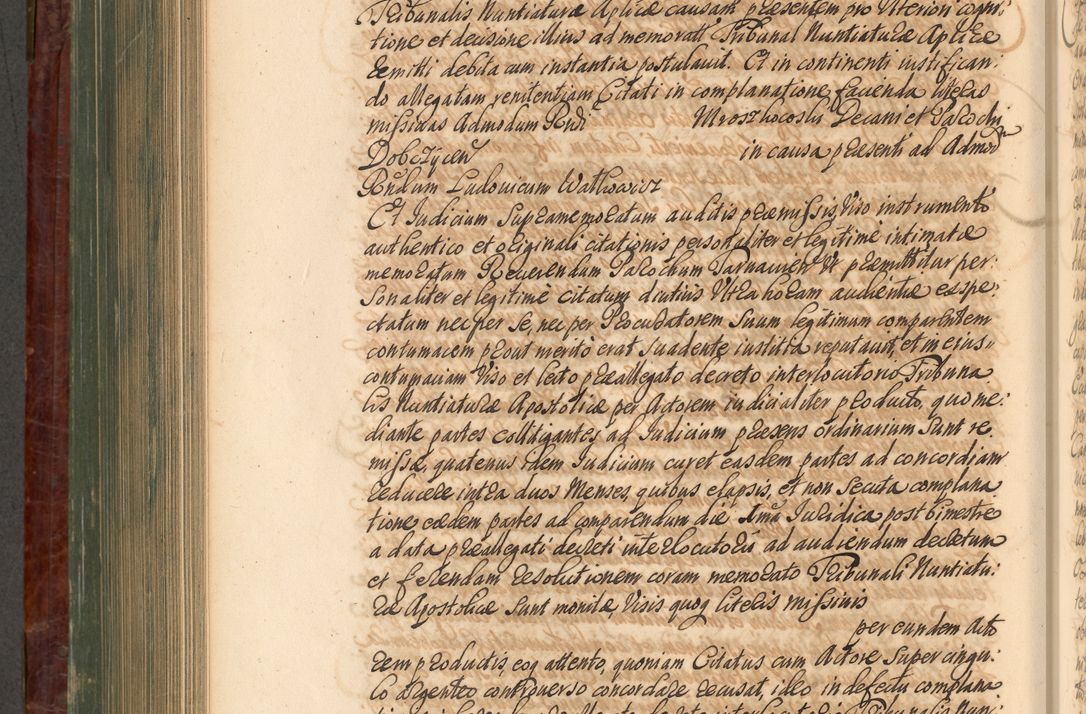 Tribunalis Nuntiaturæ Aplicæ causam præsentem pro Ulteriori cogni:
tione et decisione illius ad memoratt Tribunal Nuntiaturæ Aplicæ
remitti debita cum instantia postulavit. Et in continenti iustifican:
do allegatam renitentiam Citati in complanatione facienda literas
missivas Admodum Rndi Mroszkocoski Decani et Parochi
Dobczÿcen in causa præsenti ad Admod
Rndum Ludovicum Watkowicz
Et Iudicium Supramemoratum auditis præmissis, Viso instrumento
authentico et originali citationis personaliter et legitime intimatæ
memoratum Reverendum Parochum Tarnavien Ut præmittitur per:
sonaliter et legitime citatum diutius Ultra horam audientiæ exspe:
ctatum nec per se, nec per Procuratorem suum legitimum comparentem
contumacem prout merito erat suadente iustitia reputavit, et in eius:
contumaciam Viso et lecto præallegato decreto interlocutorio Tribuna
lis Nuntiaturæ Apostolicæ per Actorem iudicialiter producto, quo me:
diante partes collitigantes ad Iudicium præsens ordinarium sunt re.
missæ, quatenus idem Iudicium curet easdem partes ad concordiam
reducere intra duos Menses, quibus elapsis, et non secuta complana
tione eædem partes ad comparendum die 1ma Iuridica post bimestre
a data præallegati decreti interlocutorii ad audiendum decretum
et ferendam resolutionem coram memorato Tribunali Nuntiatu:
ræ Apostolicæ sunt monitæ, Visis quoq literis missivis
per eundem Acto
rem productis, eoq attento, quoniam Citatus cum Actore super cingu:
lo argenteo controverso concordare recusat, ideo in defectu complana